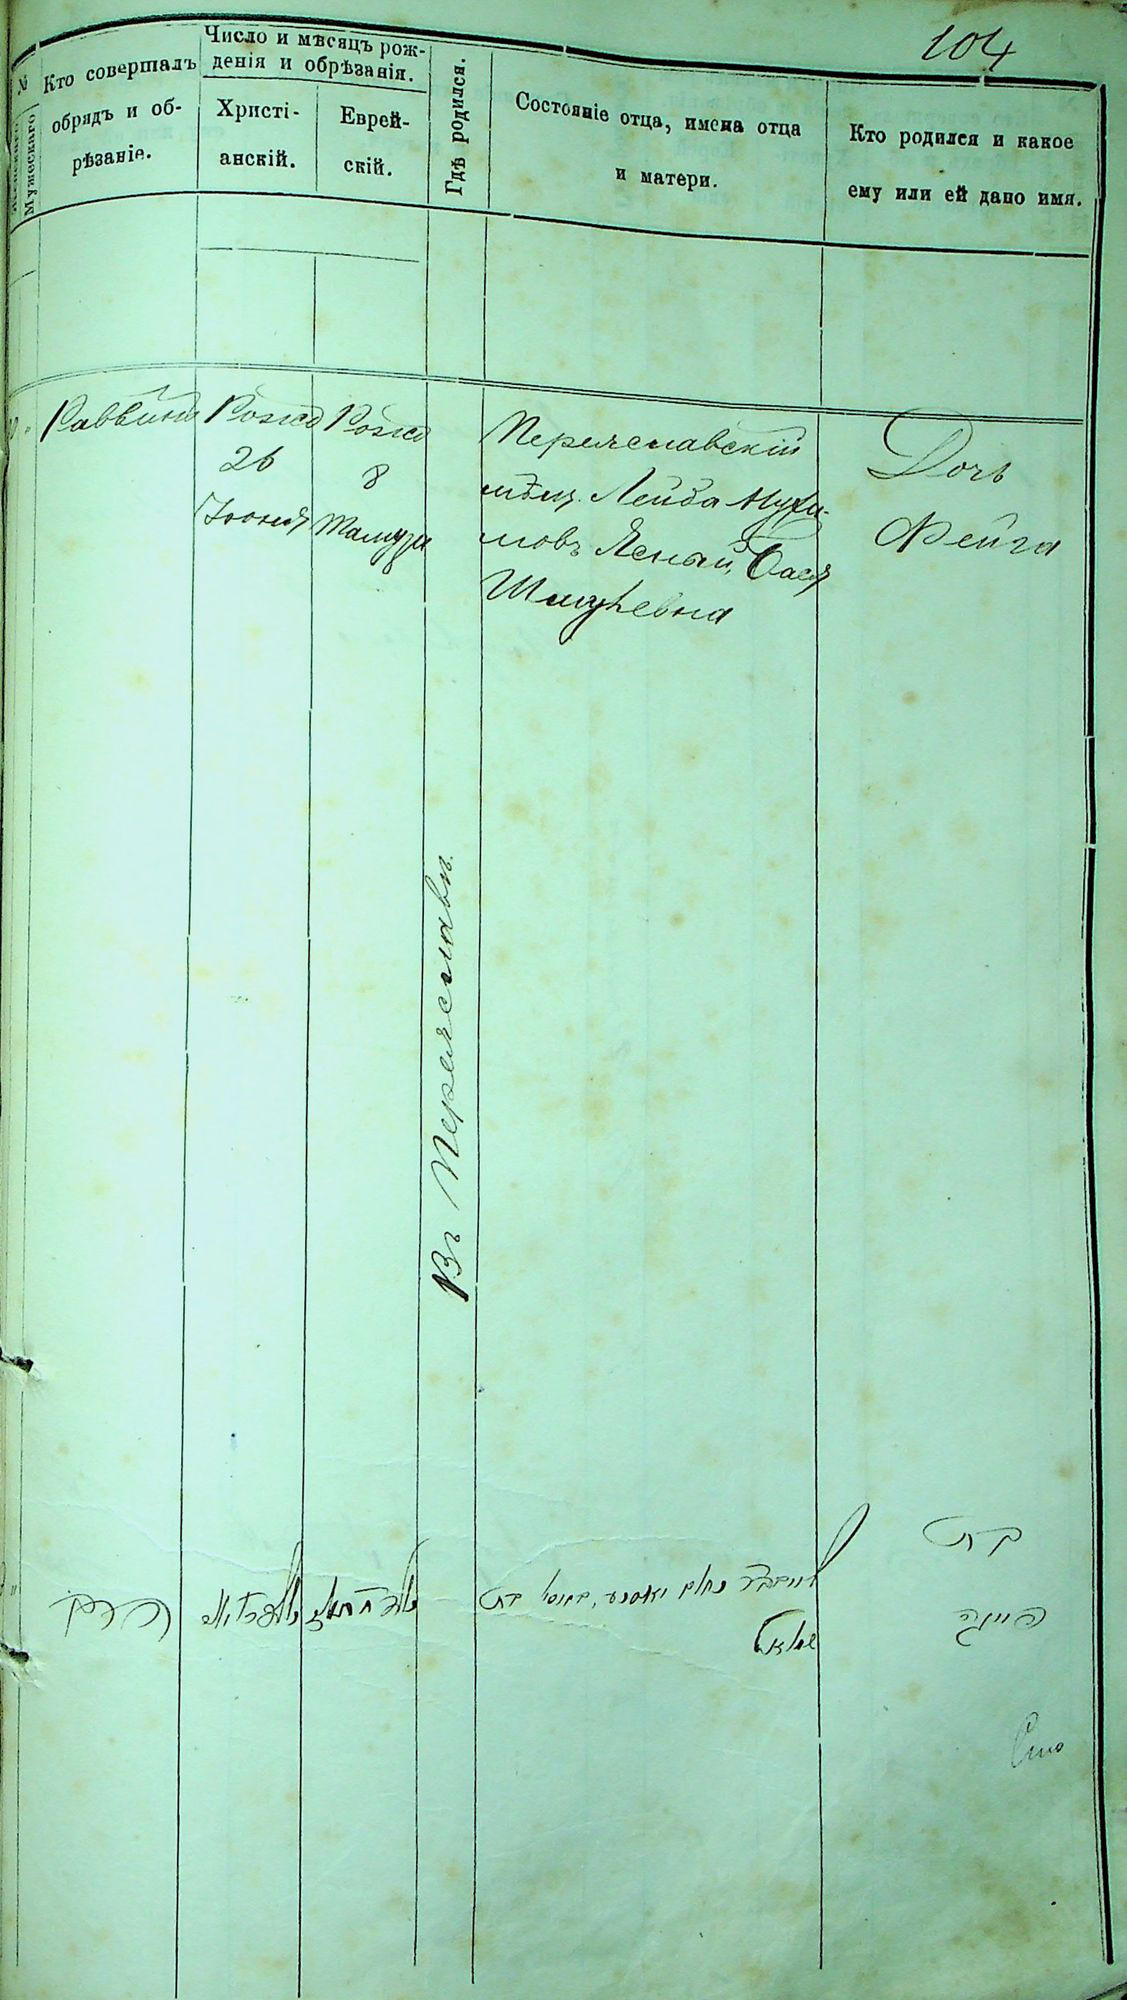 104
№
Мужескаго
Кто совершалъ
обрядъ и об-
рѣзаніе.
Число и мѣсяцъ рож-
денія и обрѣзанія.
Христі-
анскій.
Еврей-
скій.
Гдѣ родился.
Состояніе отца, имена отца
и матери.
Кто родился и какое
ему или ей дано имя.
Раввинъ
Рожд
26
Іюня
Рожд
8
Тамуза
Въ Переяславѣ.
Переяславскій
мѣщ. Лейба Нухи-
мовъ Ясный, Бася
Шмулевна
Дочь
Фейга
הרב
נחום
בת
שמואל
בת
פייגה